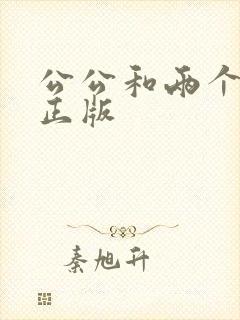 公公和两个
正版
秦旭升